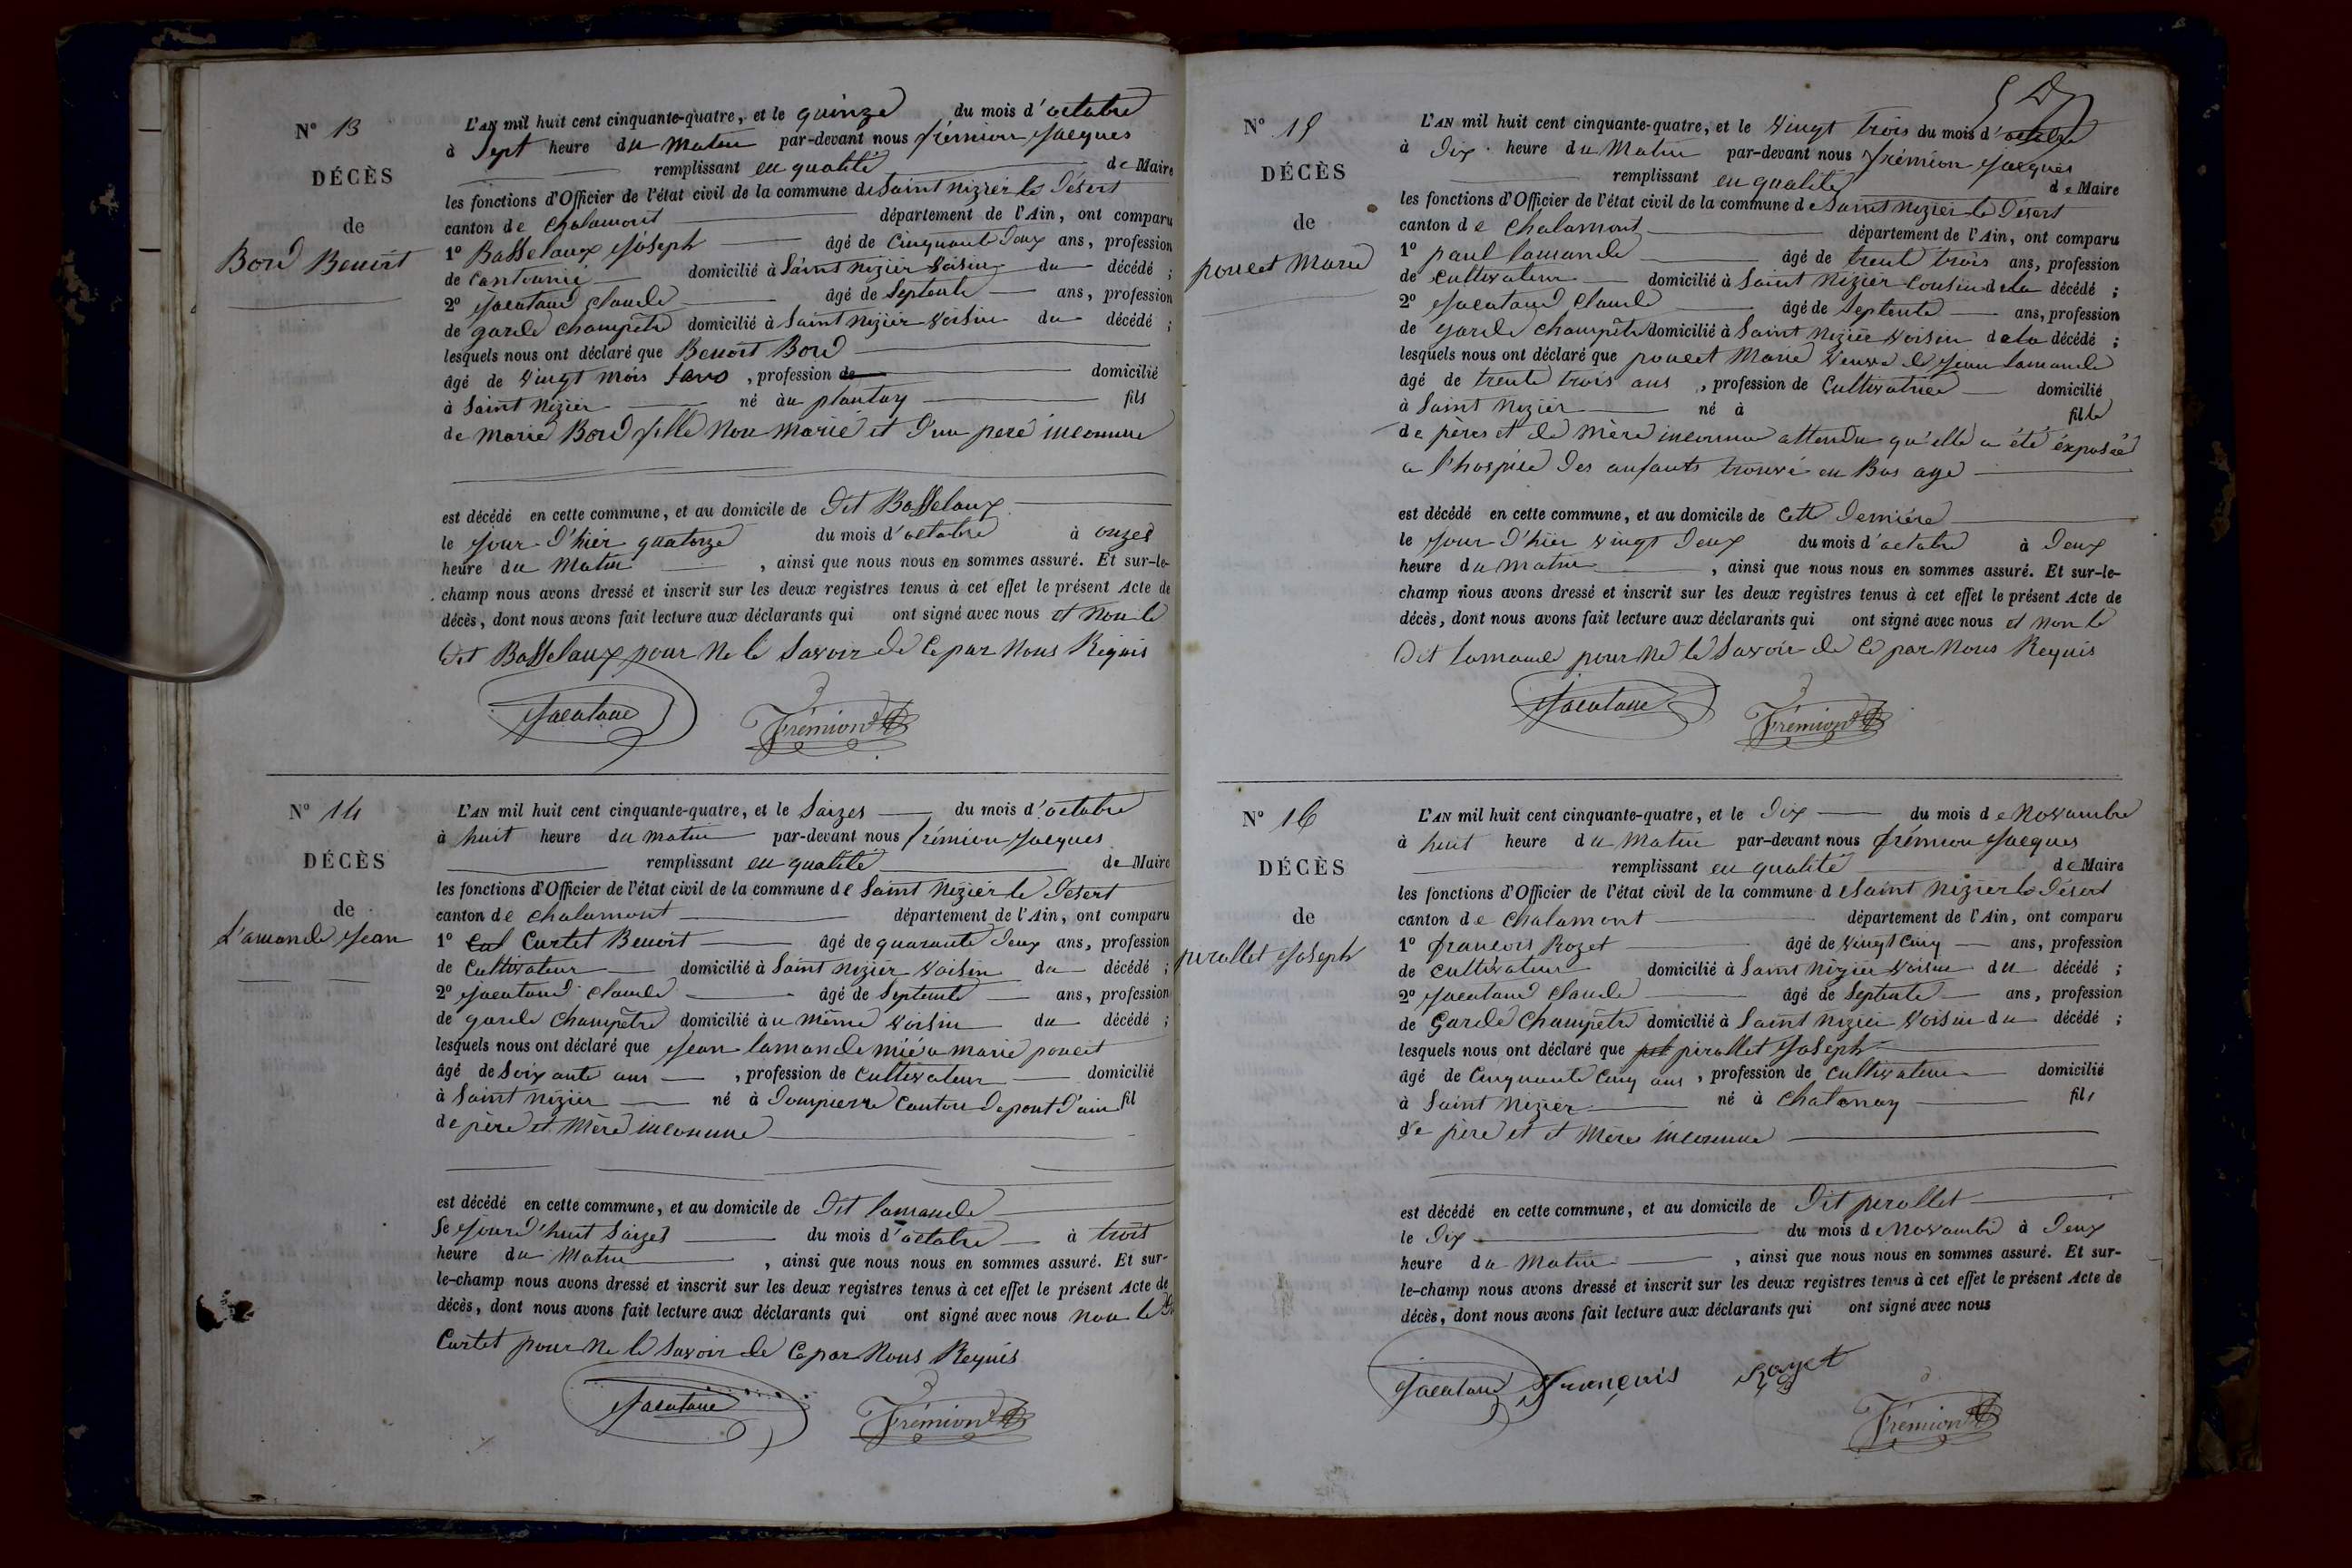 N° 13
DÉCÈS
de
Bord Benoit
L'AN mil huit cent cinquante-quatre, et le quinze du mois d'octobre
à Sept heure du matin par-devant nous frémion Jacques
remplissant en qualité de Maire
les fonctions d'Officier de l'état civil de la commune de Saint nizier le Désert
canton de chalamont département de l'Ain, ont comparu
1° Basselaux Joseph âgé de Cinquante Deux ans, profession
de cantonnié domicilié à Saint nizier voisin du décédé ;
2° Jacataud claude âgé de Septente ans, profession
de garde champêtre domicilié à Saint nizier voisin du décédé ;
lesquels nous ont déclaré que Benoit Bord
âgé de vingt mois sans , profession de domicilié
à Saint nizier né àu plantay fils
de marie Bord fille non marié et d'un peré inconnue
est décédé en cette commune, et au domicile de Dit Basselaux
le jour d'hier quatorze du mois d'octobre à onzes
heure du matin , ainsi que nous nous en sommes assuré. Et sur-le-
champ nous avons dressé et inscrit sur les deux registres tenus à cet effet le présent Acte de
décès, dont nous avons fait lecture aux déclarants qui ont signé avec nous et non le
Dit Basselaux pour ne le savoir de ce par nous Requis
Jacataud Frémion
N° 14
DÉCÈS
de
Lamande Jean
L'AN mil huit cent cinquante-quatre, et le Saizes du mois d'octobre
à huit heure du matin par-devant nous frémion Jacques
remplissant en qualité de Maire
les fonctions d'Officier de l'état civil de la commune de Saint nizier le Désert
canton de chalamont département de l'Ain, ont comparu
1° Curtet Benoit âgé de quarante Deux ans, profession
de Cultivateur domicilié à Saint nizier voisin du décédé ;
2° Jacataud claude âgé de Septente ans, profession
de garde champêtre domicilié àu même voisin du décédé ;
lesquels nous ont déclaré que Jean lamande marie poncet
âgé de Soixante ans , profession de Cultivateur domicilié
à Saint nizier né à Dompierre Canton de pont d'ain fil
de père et mère inconnue
est décédé en cette commune, et au domicile de Dit lamande
le jour d'huit Saizes du mois d'octobre à trois
heure du matin , ainsi que nous nous en sommes assuré. Et sur-
le-champ nous avons dressé et inscrit sur les deux registres tenus à cet effet le présent Acte de
décès, dont nous avons fait lecture aux déclarants qui ont signé avec nous non le
Curtet pour ne le savoir de ce par nous Requis
Jacataud Frémion
N° 15
DÉCÈS
de
poncet Marie
L'AN mil huit cent cinquante-quatre, et le vingt trois du mois d'octobre
à Dix heure du Matin par-devant nous frémion Jacques
remplissant en qualité de Maire
les fonctions d'Officier de l'état civil de la commune de Saint nizier le Désert
canton de chalamont département de l'Ain, ont comparu
1° paul lamande âgé de trente trois ans, profession
de cultivateur domicilié à Saint nizier Cousin de la décédé ;
2° Jacataud Claude âgé de Septente ans, profession
de garde champêtre domicilié à Saint nizier voisin de la décédé ;
lesquels nous ont déclaré que poncet Marie veuve de Jean lamande
âgé de trente trois ans , profession de Cultivatrice domicilié
à Saint nizier né à fille
de pères et de mère inconnue attendu qu'elle a été éxposéé
a l'hospice Des anfants trouvé en Bas age
est décédé en cette commune, et au domicile de Cette Dernière
le jour d'hier vingt Deux du mois d'octobre à Deux
heure du matin , ainsi que nous nous en sommes assuré. Et sur-le-
champ nous avons dressé et inscrit sur les deux registres tenus à cet effet le présent Acte de
décès, dont nous avons fait lecture aux déclarants qui ont signé avec nous et non le
Dit lamande pour ne le savoir de ce par nous Requis
Jacataud Frémion
N° 16
DÉCÈS
de
pirollet Joseph
L'AN mil huit cent cinquante-quatre, et le Dix du mois de Novambre
à huit heure du Matin par-devant nous frémion Jacques
remplissant en qualité de Maire
les fonctions d'Officier de l'état civil de la commune de Saint nizier le Désert
canton de chalamont département de l'Ain, ont comparu
1° francois Rozet âgé de vingt Cinq ans, profession
de cultivateur domicilié à Saint nizier voisin du décédé ;
2° Jacataud Claude âgé de Septente ans, profession
de Garde Champêtre domicilié à Saint nizier voisin du décédé ;
lesquels nous ont déclaré que pirollet Joseph
âgé de Cinquante Cinq ans , profession de cultivateur domicilié
à Saint nizier né à chatenay fils
de père et et mères inconnue
est décédé en cette commune, et au domicile de Dit pirollet
le Dix du mois de Novambre à Deux
heure du Matin , ainsi que nous nous en sommes assuré. Et sur-
le-champ nous avons dressé et inscrit sur les deux registres tenus à cet effet le présent Acte de
décès, dont nous avons fait lecture aux déclarants qui ont signé avec nous
Jacataud François Rozet
Frémion